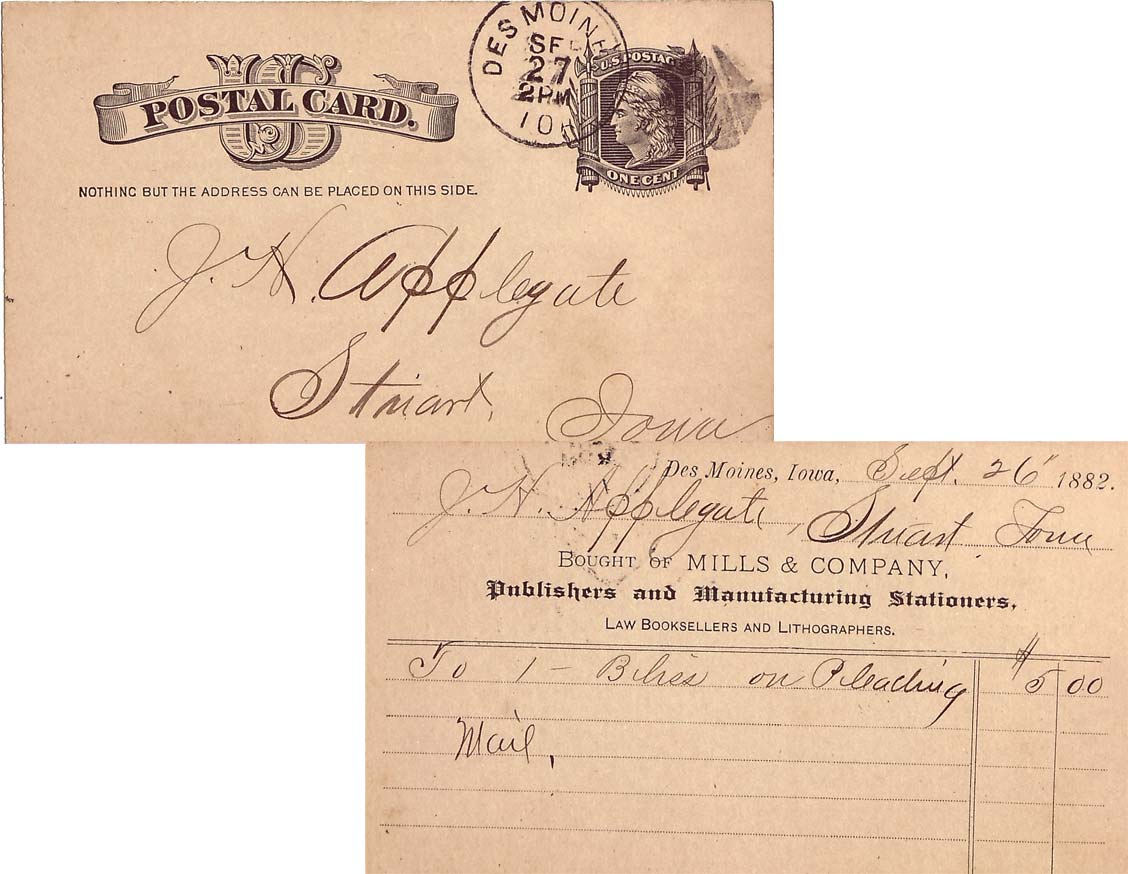 US
POSTAL CARD.
NOTHING BUT THE ADDRESS CAN BE PLACED ON THIS SIDE.
DES MOINE
SEP
27
2PM
IO
U.S. POSTAG
ONE CENT
J. H. Applegate
Stuart, Iowa
Des Moines, Iowa, Sept. 26" 1882.
J. H. Applegate, Stuart Iowa
BOUGHT OF MILLS & COMPANY,
Publishers and Manufacturing Stationers,
LAW BOOKSELLERS AND LITHOGRAPHERS.
To 1 - Bliss on Pleading $5 00
Mail,